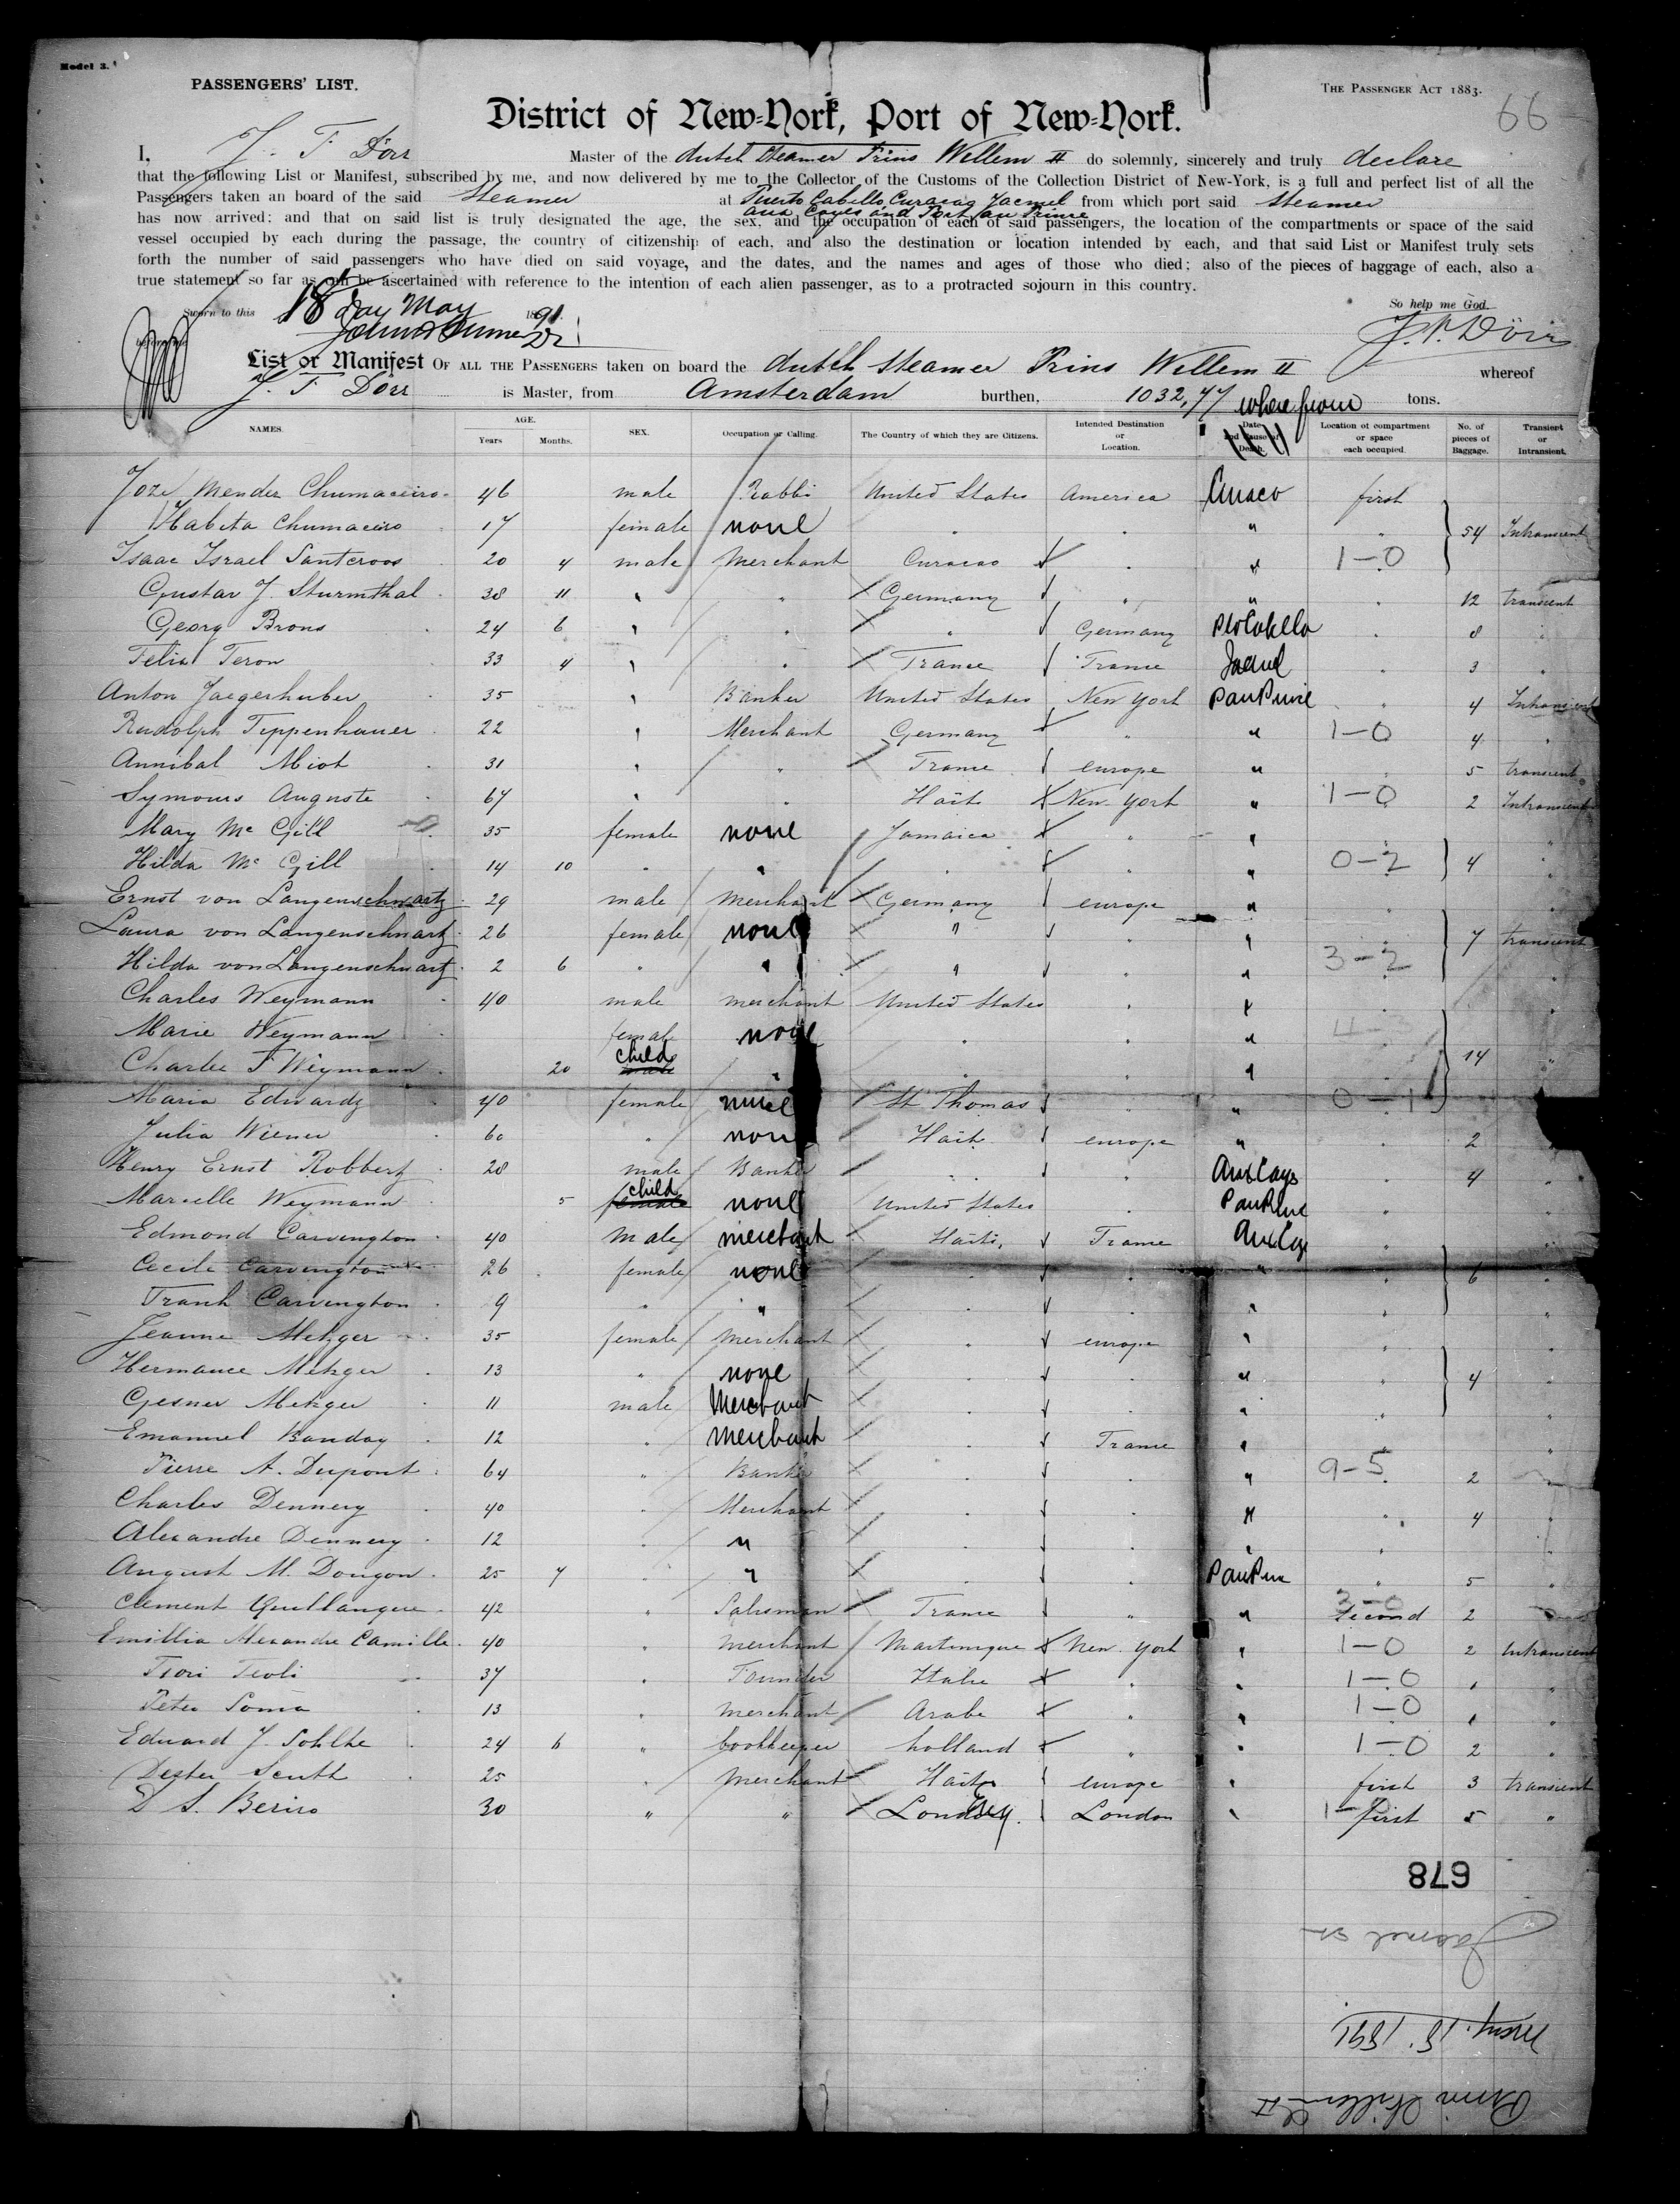 Model 3.
PASSENGERS' LIST.
THE PASSENGER ACT 1883.
66
District of New-York, Port of New-York.
I, J. F Dörr Master of the dutch steamer Prins Willem II do solemnly, sincerely and truly declare
that the following List or Manifest, subscribed by me, and now delivered by me to the Collector of the Customs of the Collection District of New-York, is a full and perfect list of all the
Passengers taken an board of the said Steamer at Puerto Cabello, Curacao Jacmel from which port said Steamer
aux Cayes and Port au Prince
has now arrived; and that on said list is truly designated the age, the sex, and the occupation of each of said passengers, the location of the compartments or space of the said
vessel occupied by each during the passage, the country of citizenship of each, and also the destination or location intended by each, and that said List or Manifest truly sets
forth the number of said passengers who have died on said voyage, and the dates, and the names and ages of those who died; also of the pieces of baggage of each, also a
true statement so far as can be ascertained with reference to the intention of each alien passenger, as to a protracted sojourn in this country.
Sworn to this 18 day May 1891
So help me God
J. F. Dörr
List or Manifest OF ALL THE PASSENGERS taken on board the dutch steamer Prins Willem II whereof
J. F Dörr is Master, from Amsterdam burthen, 1032,77 tons.
where from
NAMES. AGE. Years Months. SEX. Occupation or Calling. The Country of which they are Citizens. Intended Destination or Location. Date and Cause of Death. Location of compartment or space each occupied. No. of pieces of Baggage. Transient or Intransient.
Joze Mendez Chumaceiro 46 male Rabbi United States America Curaco first
Chumaceiro 17 female none " " " 54 Intransient
Isaac Israel Santcroos 20 4 male Merchant Curacao " " 1-0
Gustav J. Sturmthal 38 11 " " Germany " " " 12 transcent
Georg Brons 24 6 " " " Germany PtoCabello " 8 "
Felix Teron 33 4 " " France France Jacmel " 3 "
Anton Jaegerhuber 35 " Banker United States New York PauPrince " 4 Intransient
Rudolph Tippenhauer 22 " Merchant Germany " " 1-0 4 "
Annibal Miot 31 " " France europe " " 5 transcent
Symours Auguste 67 " " Haiti New York " 1-0 2 Intranscent
Mary Mc Gill 35 female none Jamaica " " " "
Hilda Mc Gill 14 10 " " " " " 0-2 4 "
Ernst von Langenschwartz 29 male Merchant Germany europe " " "
Laura von Langenschwartz 26 female none " " " " 7 transcent
Hilda von Langenschwartz 2 6 " " " " " 3-2 "
Charles Weymann 40 male merchant United States " " " "
Marie Weymann female none " " " 4-3 "
Charles F Weymann 20 child " " " " " 14 "
Maria Edwards 40 female St Thomas " " 0-1 "
Julia Wiener 60 " none Haiti europe " " 2 "
Henry Ernst Robbert 28 male Banker " " AuxCays " 4 "
Marcelle Weymann 5 child none United States " PauPrince " "
Edmond Carvington 40 Male merchant Haiti, France AuxCay " "
Cecile Carvington 26 female none " " " " 6 "
Frank Carvington 9 " " " " " " "
Jeanne Metzger 35 female Merchant " europe " " "
Hermance Metzger 13 " none " " " " 4 "
Gesner Metzger 11 male Merchant " " " " "
Emanuel Banday 12 " merchant " France " " "
Pierre A. Dupont 64 " Banker " " " 9-5 2
Charles Dennery 40 " Merchant " " " " 4 "
Alexandre Dennery 12 " " " " " " "
August M. Dougon 25 7 " " " " PauPrin " 5 "
Clement 42 " Salesman France " " 3-0 second 2
Emillia Alexandre Camille 40 " merchant Martinique New York " 1-0 2 Intranscent
Fiori Tivoli 37 " Founder Italie " " 1-0 1 "
Peter Soma 13 " merchant Arabe " " 1-0 1 "
Eduard J. Sohlke 24 6 " bookkeeper holland " " 1-0 2 "
Dester Scutt 25 " Merchant Haiti europe " first 3 transcent
D S. Beriro 30 " " London London " 1-0 first 5 "
678
Jacmel
May. 18. 1891
Prins Willem II